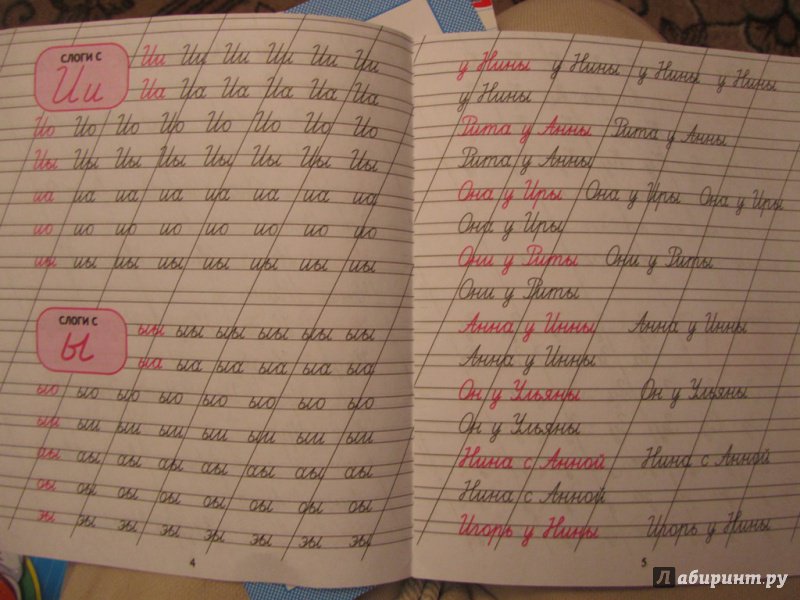 СЛОГИ С
Ии
Ии Ии Ии Ии Ии Ии
Иа Иа Иа Иа Иа Иа
Ио Ио Ио Ио Ио Ио Ио Ио
Иы Иы Иы Иы Иы Иы Иы Иы
иа иа иа иа иа иа иа иа
ио ио ио ио ио ио ио ио
иы иы иы иы иы иы иы иы
СЛОГИ С
ы
ыы ыы ыы ыы ыы ыы
ыа ыа ыа ыа ыа ыа
ыо ыо ыо ыо ыо ыо ыо ыо
ыи ыи ыи ыи ыи ыи ыи ыи
аы аы аы аы аы аы аы аы
оы оы оы оы оы оы оы оы
эы эы эы эы эы эы эы эы
4
у Нины у Нины у Нины у Нины
у Нины
Рита у Анны Рита у Анны
Рита у Анны
Она у Иры Она у Иры Она у Иры
Она у Иры
Они у Риты Они у Риты
Они у Риты
Анна у Инны Анна у Инны
Анна у Инны
Он у Ульяны Он у Ульяны
Он у Ульяны
Нина с Анной Нина с Анной
Нина с Анной
Игорь у Нины Игорь у Нины
5
Лабиринт.ру